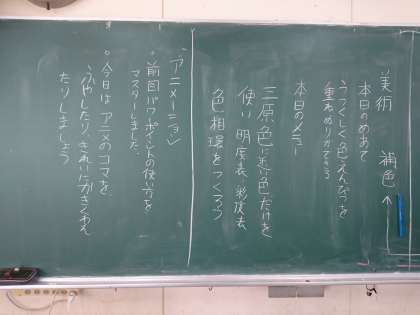 美術 補色
本日のめあて
うつくしく色えんぴつを
重ねぬりができる
本日のメニュー
三原色に近い色だけを
使い 明度表、彩度表
色相環をつくろう
アニメーション
・前回パワーポイントの使い方を
マスターしました。
・今日はアニメのコマを
ふやしたり、きれいにかきくわえ
たりしましょう